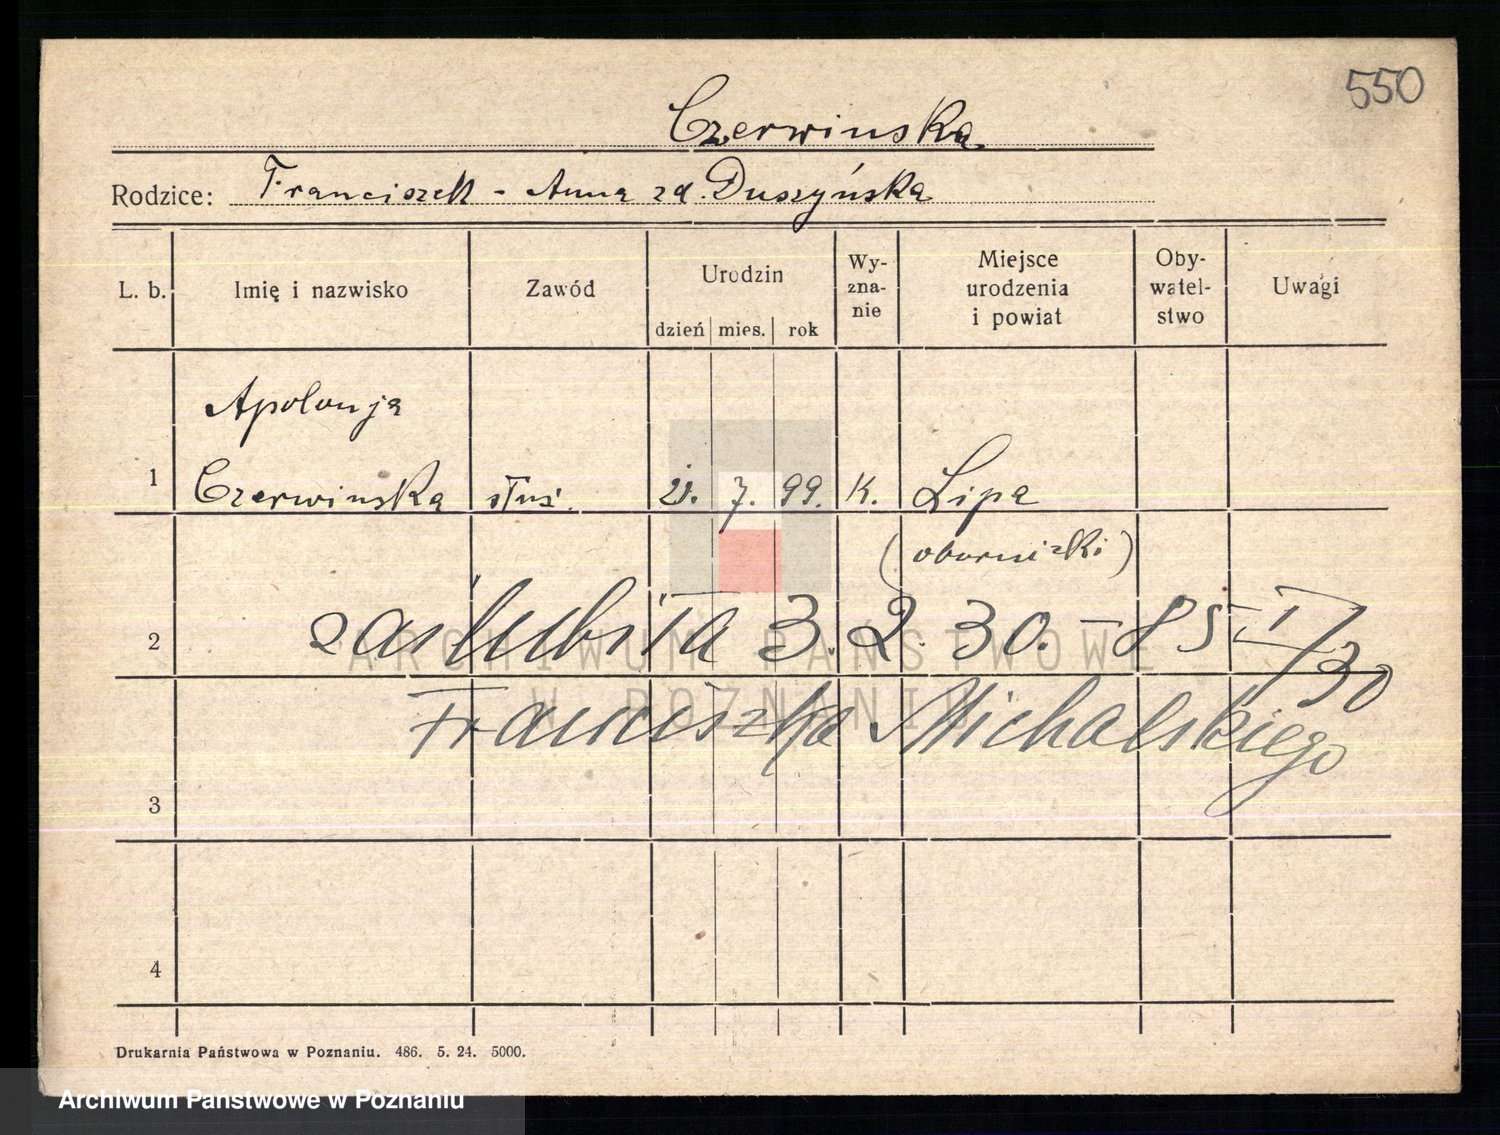 550
Czerwinska
Rodzice: Franciszek - Anna zd. Duszyńska
L. b. Imię i nazwisko Zawód Urodzin dzień mies. rok Wy- zna- nie Miejsce urodzenia i powiat Oby- watel- stwo Uwagi
Apolonja
1 Czerwinska służ. 7. 99. K. Lipa
(obornicki)
2 zaślubiła 3. 2. 30. - 85 I/30
Franciszka Michalskiego
3
4
Drukarnia Państwowa w Poznaniu. 486. 5. 24. 5000.
ARCHIWUM PAŃSTWOWE
W POZNANIU
Archiwum Państwowe w Poznaniu